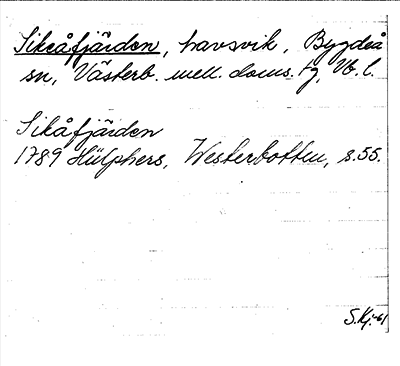 Sikeåfjärden, havsvik, Bygdeå
sn, Västerb. mell. doms. tg, Vb. l.
Sikåfjärden
1789 Hülphers, Westerbotten, s.55.
S.Kj.-61